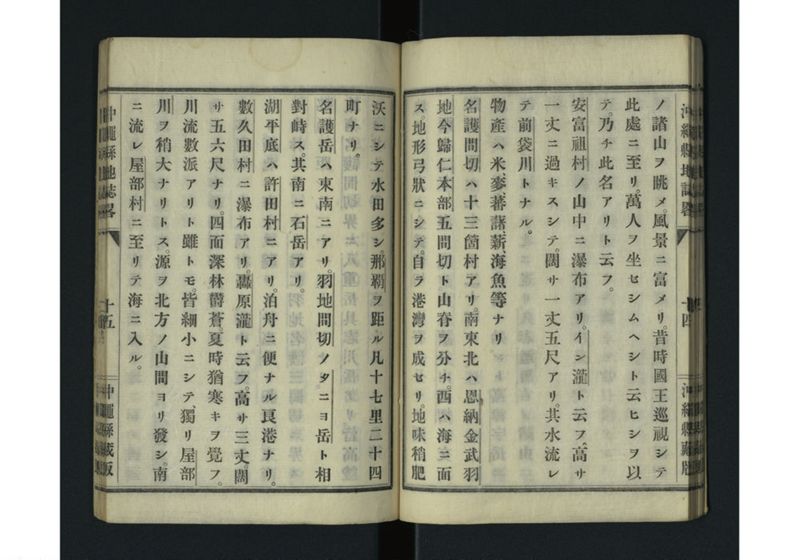 沖繩縣地誌畧
十四
沖繩縣藏版
ノ諸山ヲ眺メ。風景ニ富メリ。昔時國王巡視シテ
此處ニ至リ。萬人ヲ坐セシムヘシト云ヒシヲ以
テ。乃チ此名アリト云フ。
安富祖村ノ山中ニ瀑布アリ。イン瀧ト云フ。高サ
一丈ニ過キスシテ。闊サ一丈五尺アリ。其水流レ
テ前袋川トナル。
物產ハ米、麥、蕃藷、薪、海魚等ナリ
名護間切ハ十三箇村アリ。南東北ハ恩納金武羽
地今歸仁本部五間切ト山脊ヲ分チ。西ハ海ニ面
ス地形弓狀ニシテ。自ラ港灣ヲ成セリ。地味稍肥
沃ニシテ水田多シ。那覇ヲ距ル凡十七里二十四
町ナリ。
名護岳ハ東南ニアリ。羽地間切ノタニヨ岳ト相
對峙ス。其南ニ石岳アリ。
湖平底ハ許田村ニアリ。泊舟ニ便ナル良港ナリ。
數久田村ニ瀑布アリ。轟原瀧ト云フ。高サ三丈闊
サ五六尺ナリ。四面深林欝蒼。夏時猶寒キヲ覺フ。
川流數派アリト雖トモ。皆細小ニシテ。獨リ屋部
川ヲ稍大ナリトス。源ヲ北方ノ山間ヨリ發シ。南
ニ流レ屋部村ニ至リテ海ニ入ル。
沖繩縣地誌畧
十五
沖繩縣藏版